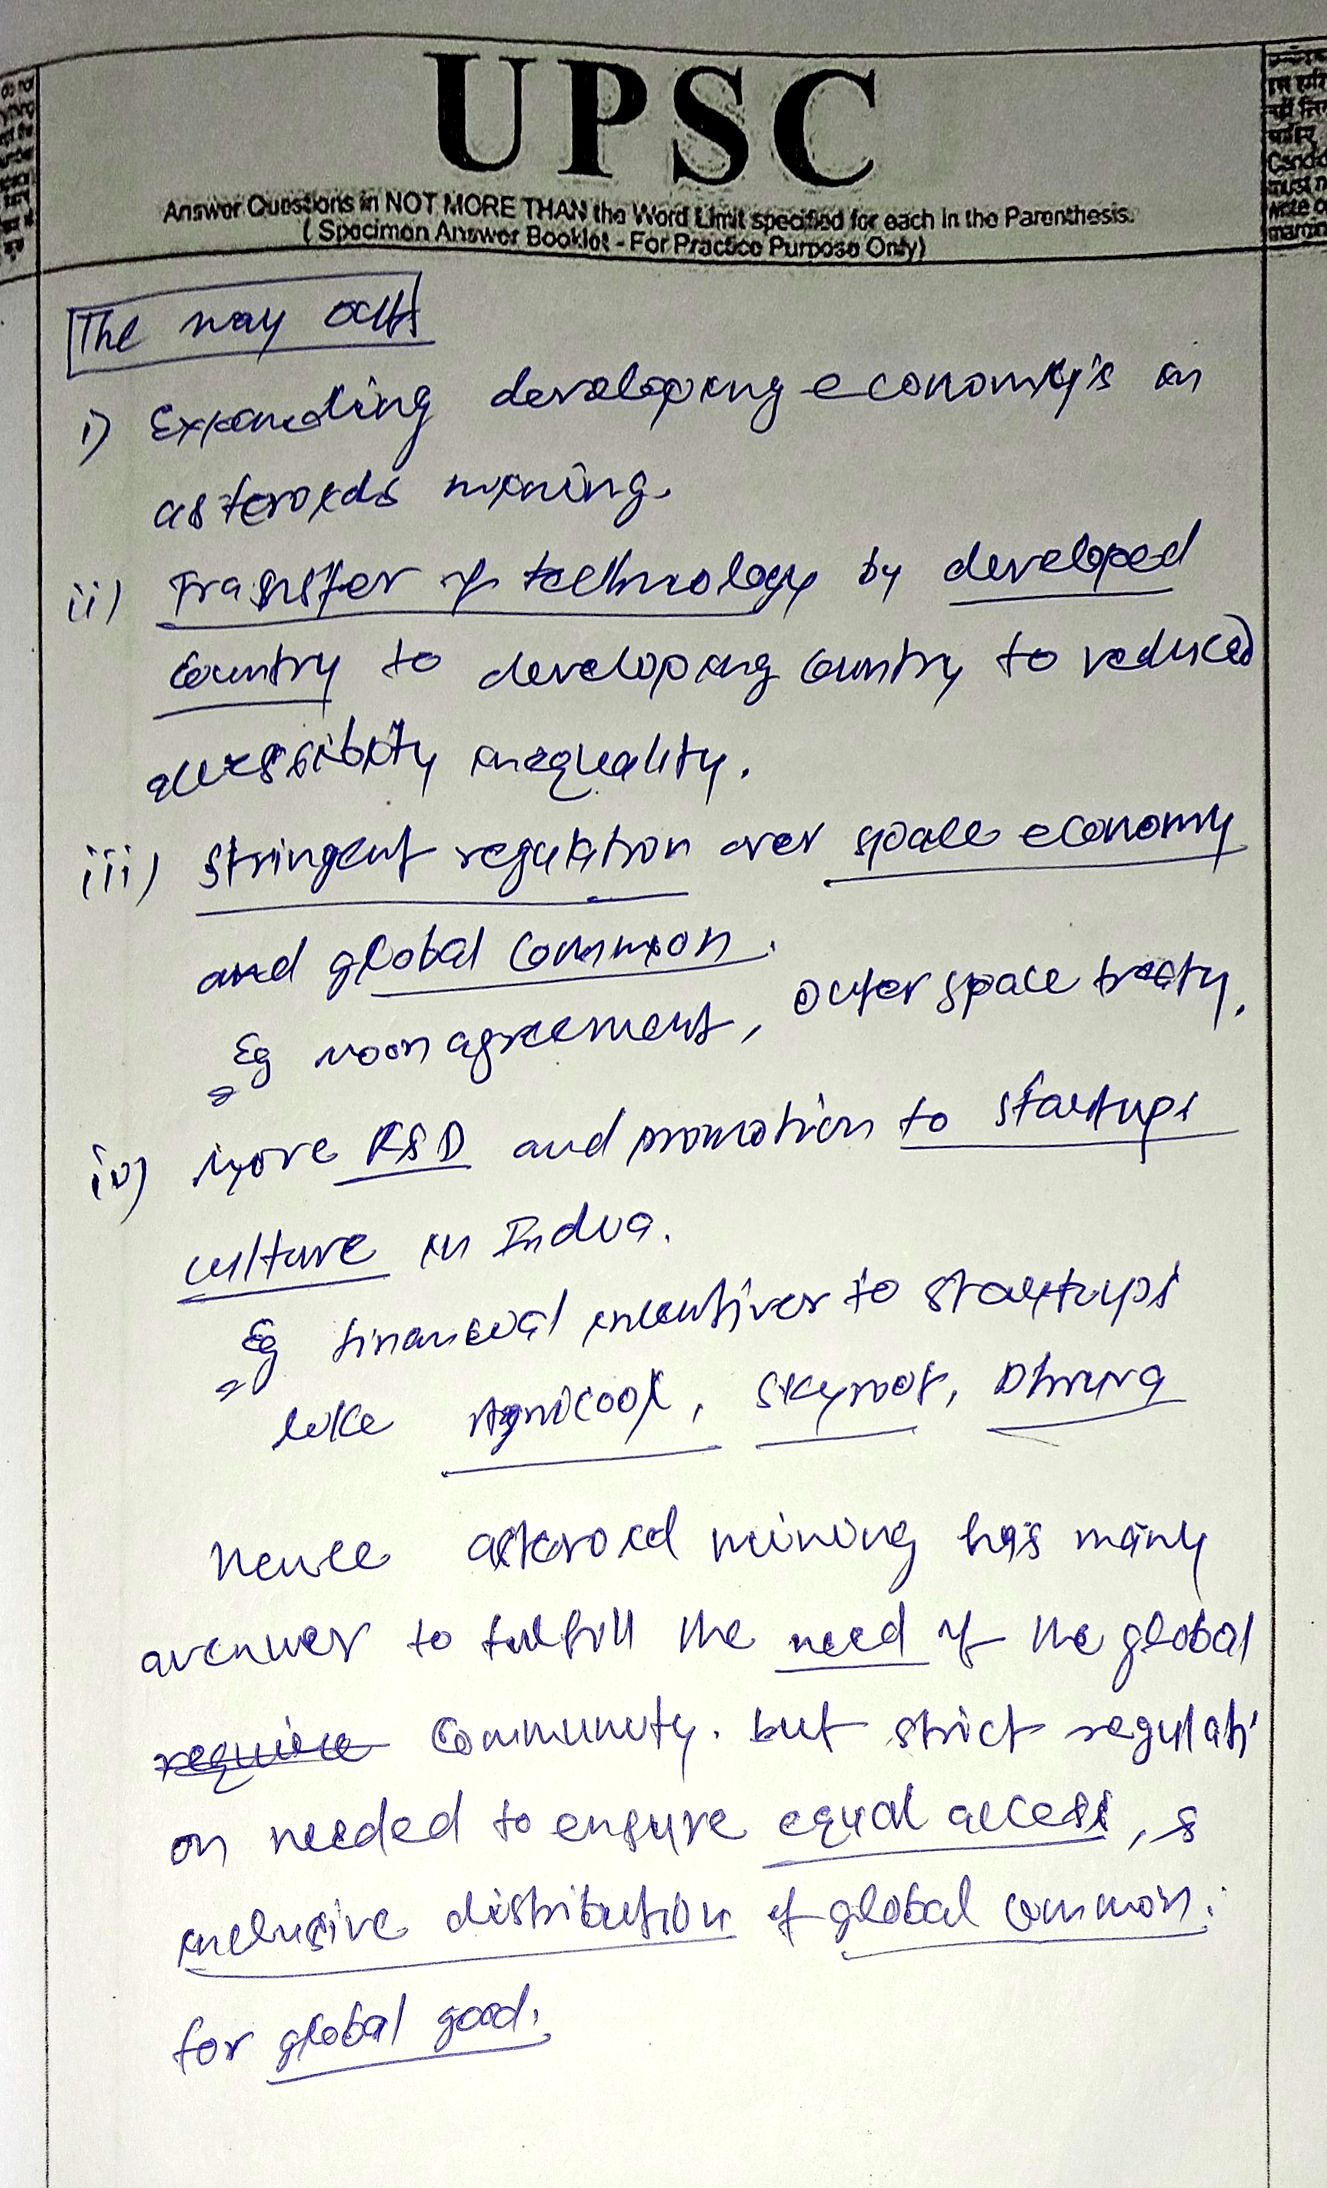 UPSC
Answer Questions in NOT MORE THAN the Word Limit specified for each in the Parenthesis.
( Specimen Answer Booklet - For Practice Purpose Only)
The way out
i) Expanding developing economy's in
asteroids mining.
ii) Transfer of technology by developed
country to developing country to reduced
accessibity inequality.
iii) Stringent regulation over space economy
and global common.
Eg moon agreement, outer space treaty.
iv) more R&D and promotion to startups
culture in India.
Eg financial incentives to startups
like Agnicool, Skyroot, Dhruva
Hence asteroid mining has many
avenues to fulfill the need of the global
require community. but strict regulati
on needed to ensure equal access, &
inclusive distribution of global common.
for global good.